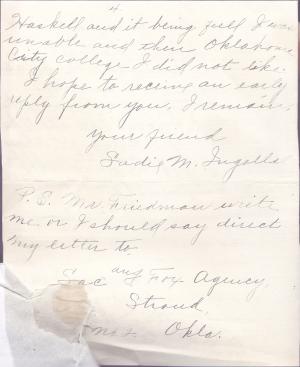 4
Haskell and it being full I was
unable and then Oklahoma
City college I did not like.
I hope to receive an early
reply from you. I remain.
Your friend
Sadie M. Ingalls
P.S. Mr. Friedman write
me or I should say direct
my letter to
Sac and Fox Agency,
Stroud,
Okla.